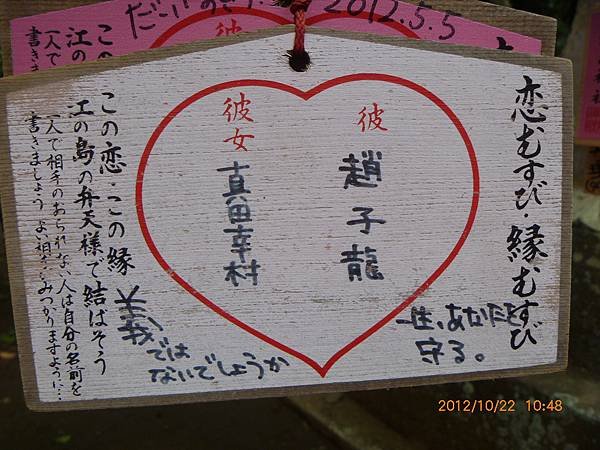 だーいすき
2012.5.5
恋むすび・縁むすび
彼
趙子龍
彼女
真田幸村
一生、あなたを
守る。
義では
ないでしょうか
この恋・この縁
江の島の弁天様で結ばそう
一人で相手のおられない人は自分の名前を
書きましょう よい相手がみつかりますように…
2012/10/22 10:48